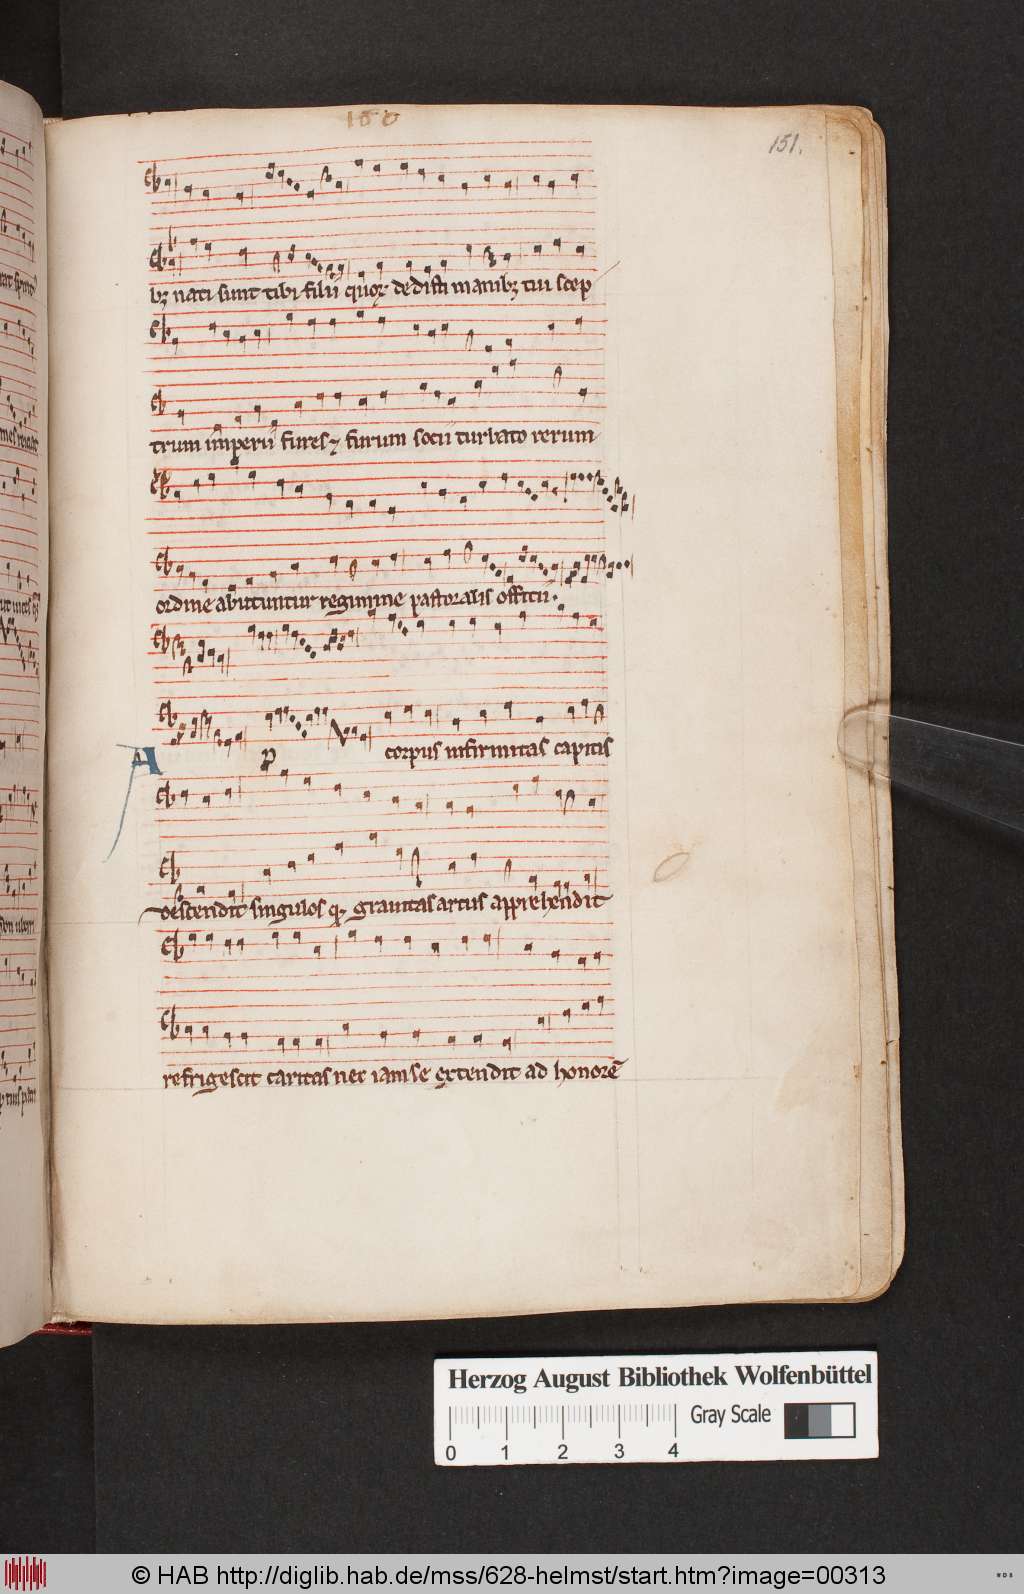 150
151.
bꝫ nati sunt tibi filii quoꝝ dedisti manibꝫ tui scep
trum imꝑiū fures ⁊ furum socii turbato rerum
ordine abutuntur regimine pastoralis officii.
A ꝑ corpus infirmitas capitis
descendit singulos qꝫ grauitas artus apprehendit
refrigescit caritas nec iam se extendit ad honorē
Herzog August Bibliothek Wolfenbüttel
Gray Scale
0 1 2 3 4
© HAB http://diglib.hab.de/mss/628-helmst/start.htm?image=00313